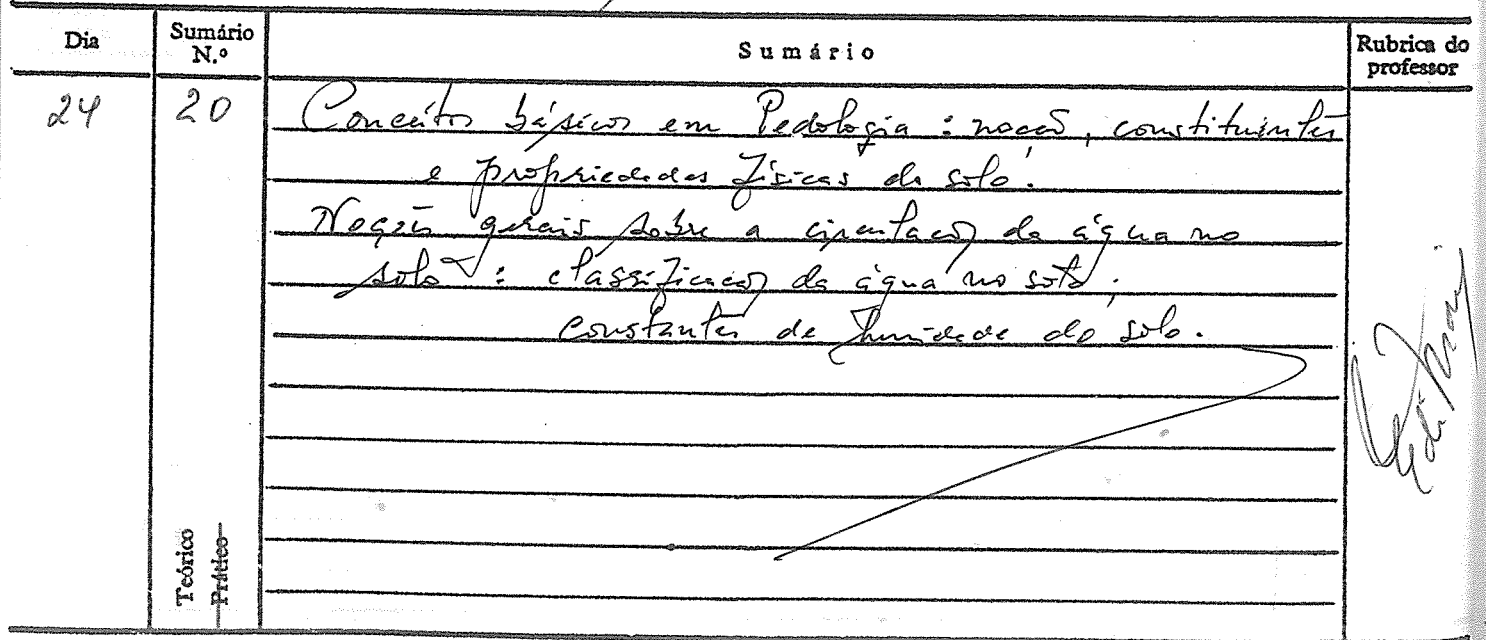 Dia
Sumário N.º
Sumário
Rubrica do professor
24
20
Conceitos básicos em Pedologia : noção, constituintes
e propriedades físicas do solo.
Noções gerais sobre a circulação da água no
solo : classificação da água no solo ;
constantes de humidade do solo.
Teórico
Prático